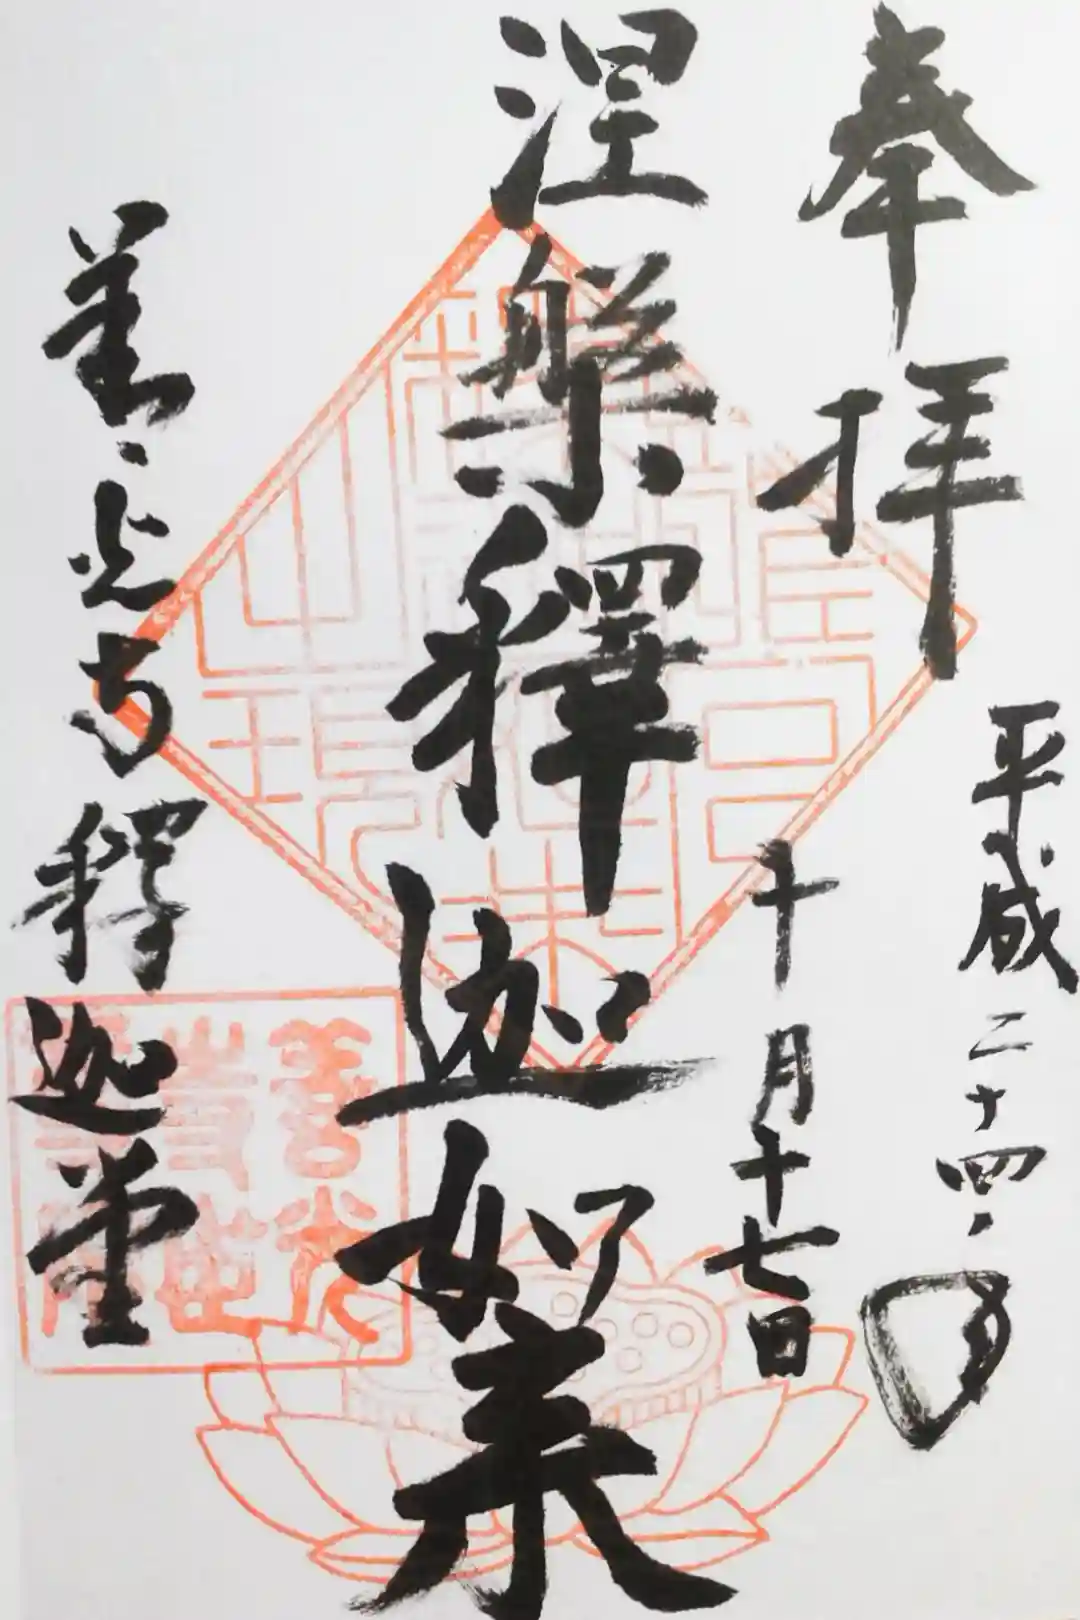 奉拝
平成二十四、
十月十七日
涅槃釋迦如来
善光寺釋迦堂